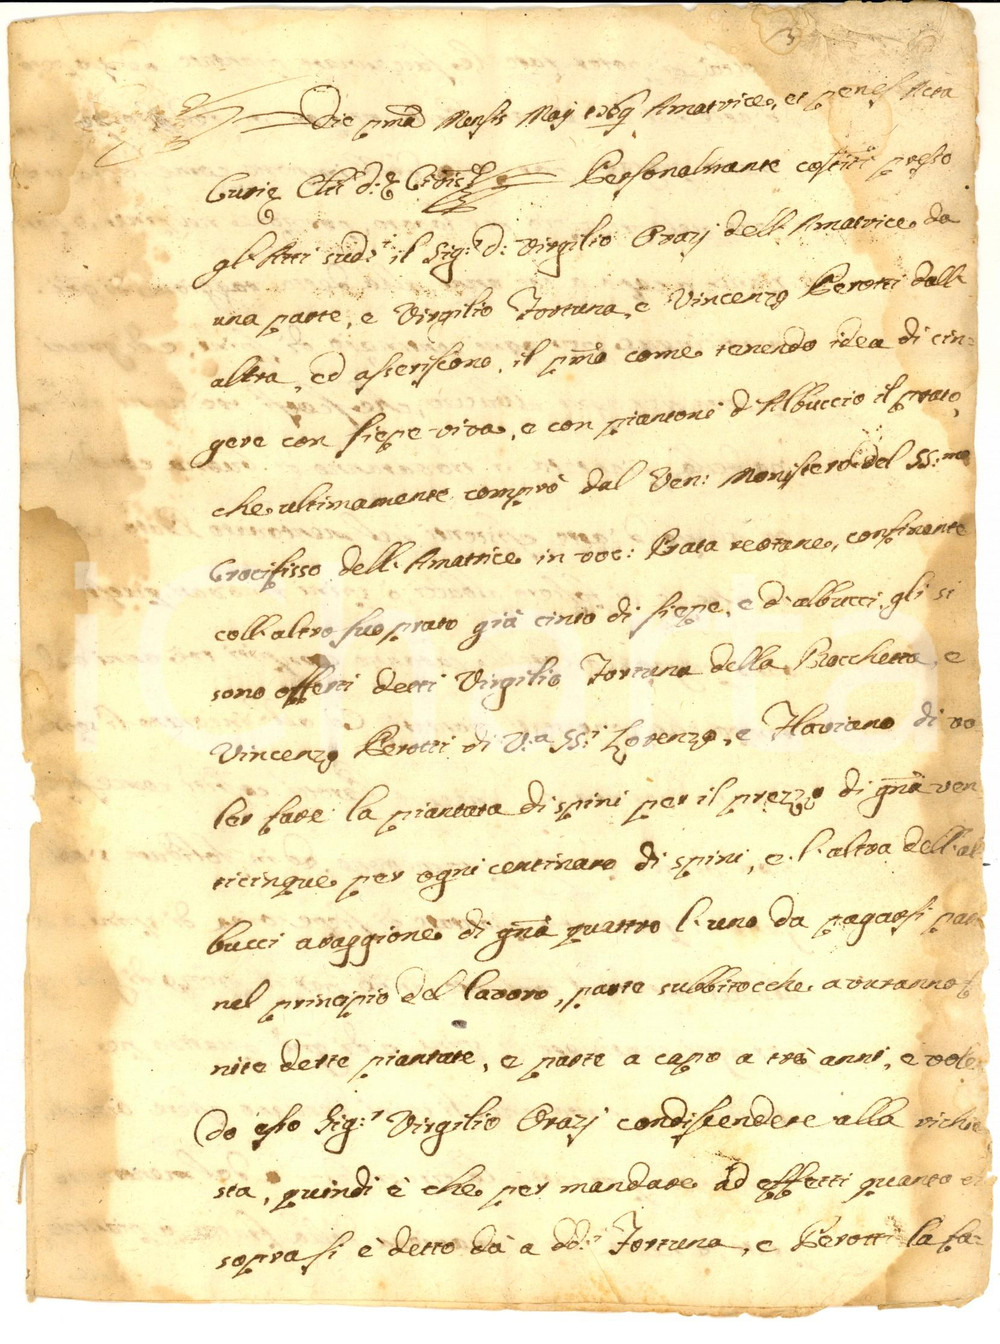 Die pma Mensis Maij 1769 Amatrice, et penes Acta
Curie Personalmente costti presso
gl'Atti sudi il Sigr d: Virgilio Orazj dell'Amatrice da
una parte, e Virgilio Fortuna, e Vincenzo Perotti dall'
altra, ed asseriscono, il pmo come tenendo idea di cin=
gere con siepe viva, e con piantoni d'Albuccio il prato,
che ultimamente comprò dal Ven: Monistero del SS:mo
Crocifisso dell'Amatrice in voc: Prata reotane, confinante
coll'altro suo prato già cinto di siepe, e d'albucci, gli si
sono offerti detti Virgilio Fortuna della Rocchetta, e
Vincenzo Perotti di V:a SS:i Lorenzo, e Flaviano di vo
ler fare la piantata di spini per il prezzo di gnà ven
ticinque per ogni centinaro di spini, e l'altra dell'al
bucci araggione di gnà quattro l'uno da pagarsi par
nel principio del lavoro, parte subbitocche avuranno f
nite dette piantate, e parte a capo a tre anni, e vole
do esso Sig:r Virgilio Orazj condiscendere alla richie
sta, quindi è che per mandare ad effetti quanto di
sopra si è detto dà a dd:i Fortuna, e Perotti la fa=